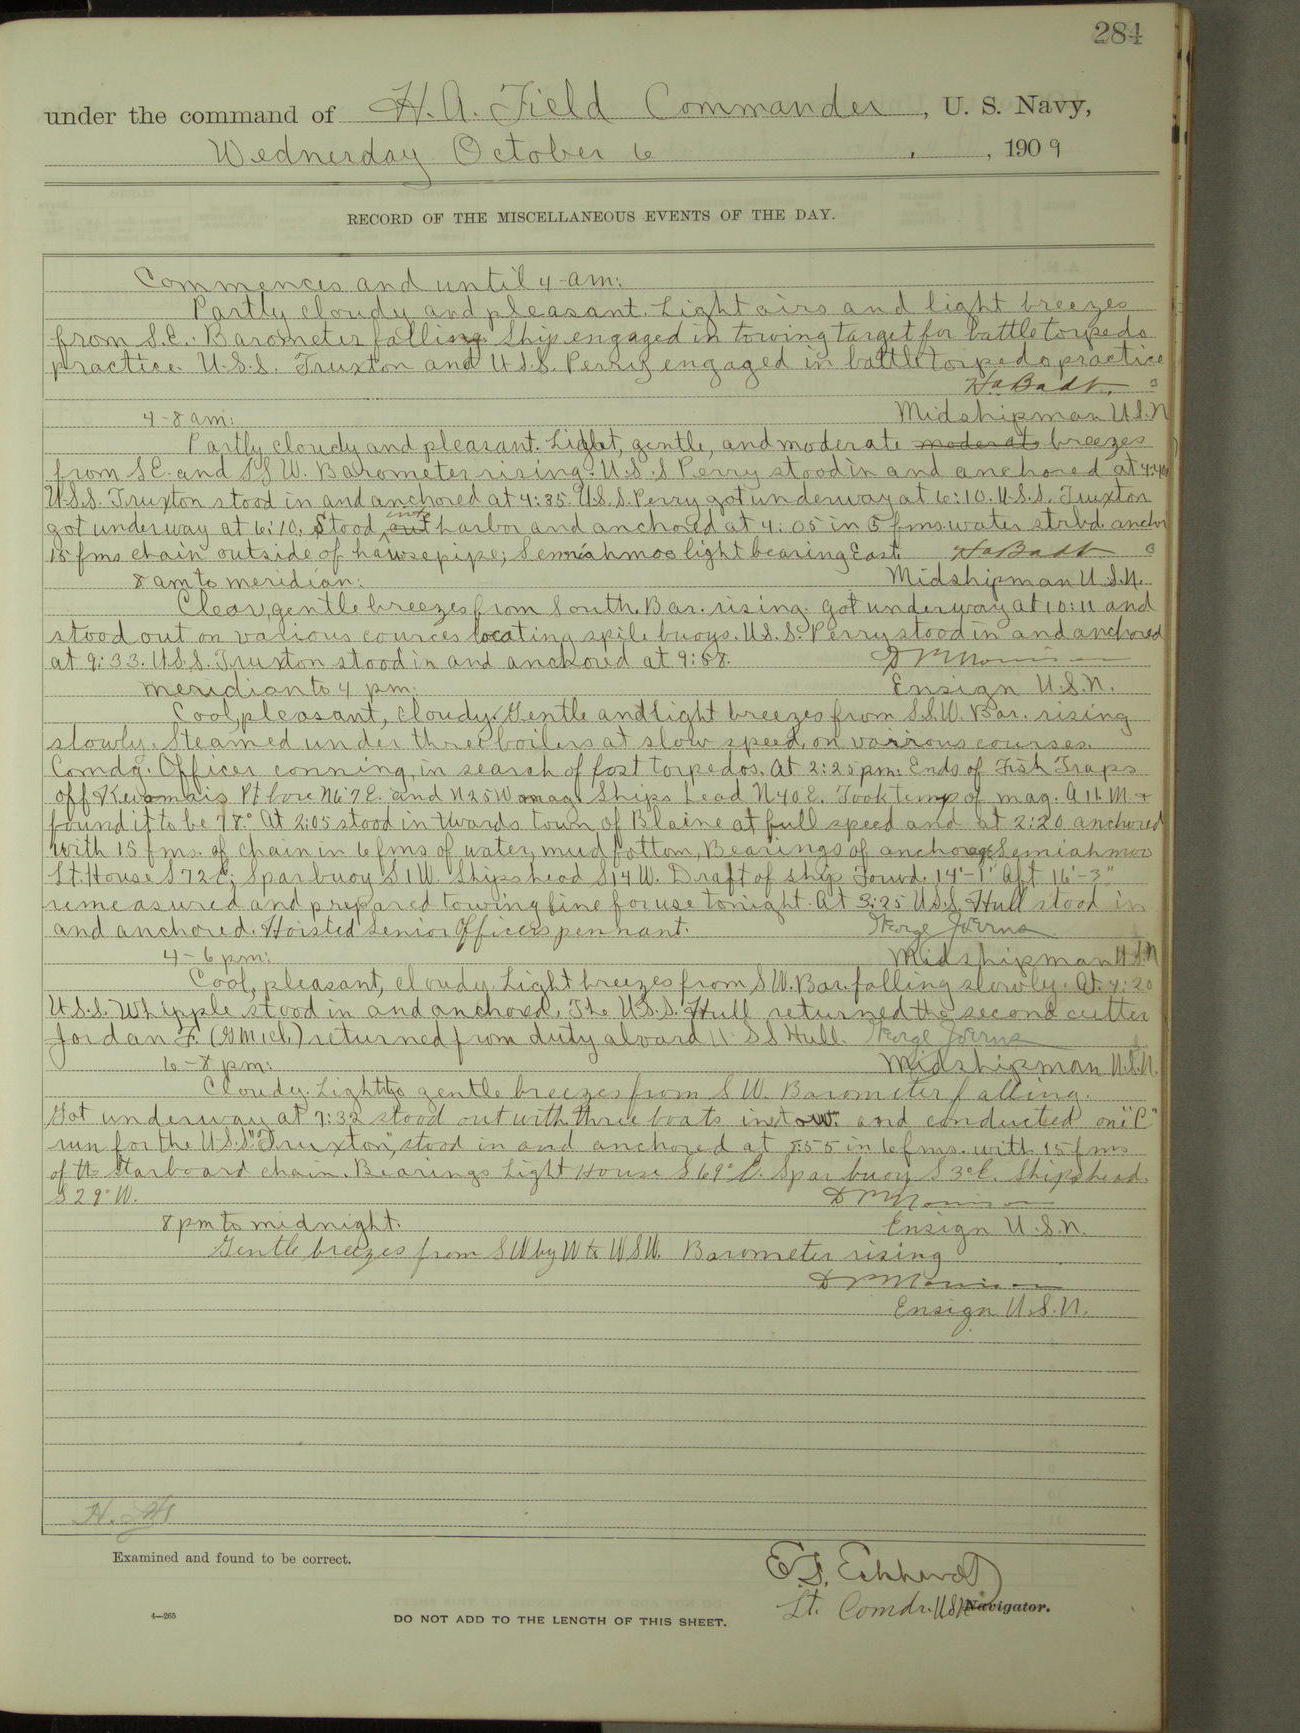 284
under the command of H. A. Field Commander, U. S. Navy,
Wednesday October 6, 1909
RECORD OF THE MISCELLANEOUS EVENTS OF THE DAY.
Commences and until 4 am:
Partly cloudy and pleasant. Light airs and light breezes
from S.E. Barometer falling. Ship engaged in towing target for battle torpedo
practice. U.S.S. Truxton and U.S.S. Perry engaged in battle torpedo practice
Ha Badt.
4-8 am:
Midshipman U.S.N
Partly cloudy and pleasant. Light, gentle, and moderate moderate breezes
from S.E. and SSW. Barometer rising. U.S.S Perry stood in and anchored at 4:40
U.S.S. Truxton stood in and anchored at 4:35. U.S.S. Perry got underway at 6:10. U.S.S. Truxton
got underway at 6:10. Stood into out harbor and anchored at 4:05 in 5 fms. water strbd. anchor
15 fms chain outside of hawsepipe; Semiahmoo light bearing East. Ha Badt
8 am to meridian:
Midshipman U.S.N.
Clear, gentle breezes from South. Bar. rising. Got underway at 10:11 and
stood out on various cources locating spile buoys. U.S.S. Perry stood in and anchored
at 9:33. U.S.S. Truxton stood in and anchored at 9:58.
meridian to 4 pm.
Ensign U.S.N.
Cool, pleasant, cloudy. Gentle and light breezes from S.S.W. Bar. rising
slowly. Steamed under three boilers at slow speed, on various courses.
Comdg. Officer conning, in search of lost torpedos. At 2:25 pm. Ends of Fish Traps
off Pt bore N67E. and N25W mag. Ships Lead N40E. Took temp of mag. A 11. M. +
found it to be 78°. At 2:05 stood in twards town of Blaine at full speed and at 2:20 anchored
with 15 fms. of chain in 6 fms of water, mud bottom, Bearings of anchorage Semiahmoo
Lt. House S72E; Spar buoy S1W. Ships head S14W. Draft of ship Forwd. 14'-1" Aft 16'-3"
remeasured and prepared towing line for use tonight. At 3:25 U.S.S. Hull stood in
and anchored. Hoisted Senior Officers pennant.
4-6 pm:
Midshipman U.S.N
Cool, pleasant, cloudy. Light breezes from SW. Bar. falling slowly. At 4:20
U.S.S. Whipple stood in and anchored. The U.S.S. Hull returned the second cutter
Jordan F. (GM1cl.) returned from duty aboard U.S.S Hull.
6-8 pm:
Midshipman U.S.N.
Cloudy. Light to gentle breezes from SW. Barometer falling.
Got underway at 7:32 stood out with three boats in tow and conducted one "C"
run for the U.S.S. "Truxton", stood in and anchored at 8:55 in 6 fms. with 15 fms
of the starboard chain. Bearings Light House S 69° E. Spar buoy S 3° E. Ships head
S 29° W.
8 pm to midnight.
Ensign U.S.N.
Gentle breezes from SW by W to WSW. Barometer rising
Ensign U.S.N.
Examined and found to be correct.
E.S. Eckhardt
Lt. Comdr. USN Navigator.
4—265
DO NOT ADD TO THE LENGTH OF THIS SHEET.